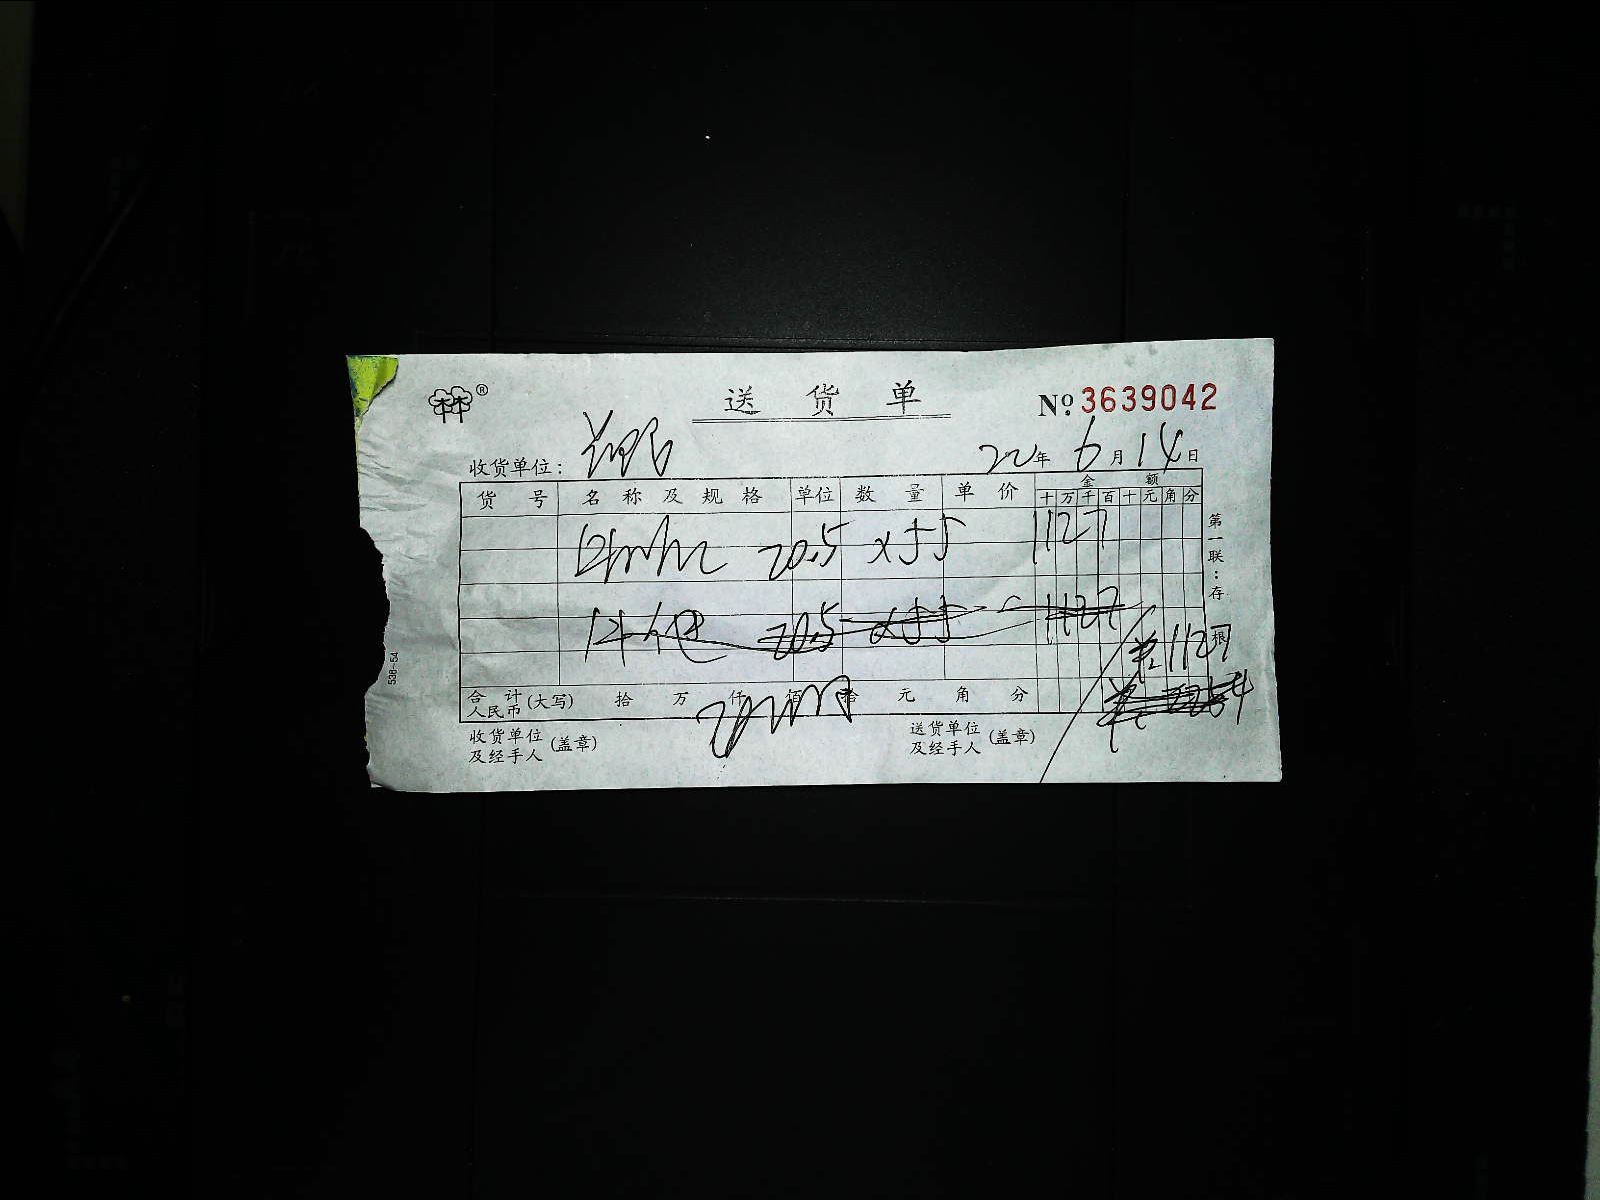 送货单 № 3639042
收货单位： 22年6月14日
货号 名称及规格 单位 数量 单价 金额
十万千百十元角分
20.5 x55 1127
20.5 x55 1127
1127
合计人民币(大写) 拾 万 仟 佰 拾 元 角 分
收货单位及经手人(盖章) 送货单位及经手人(盖章)
第一联：存根
536-54